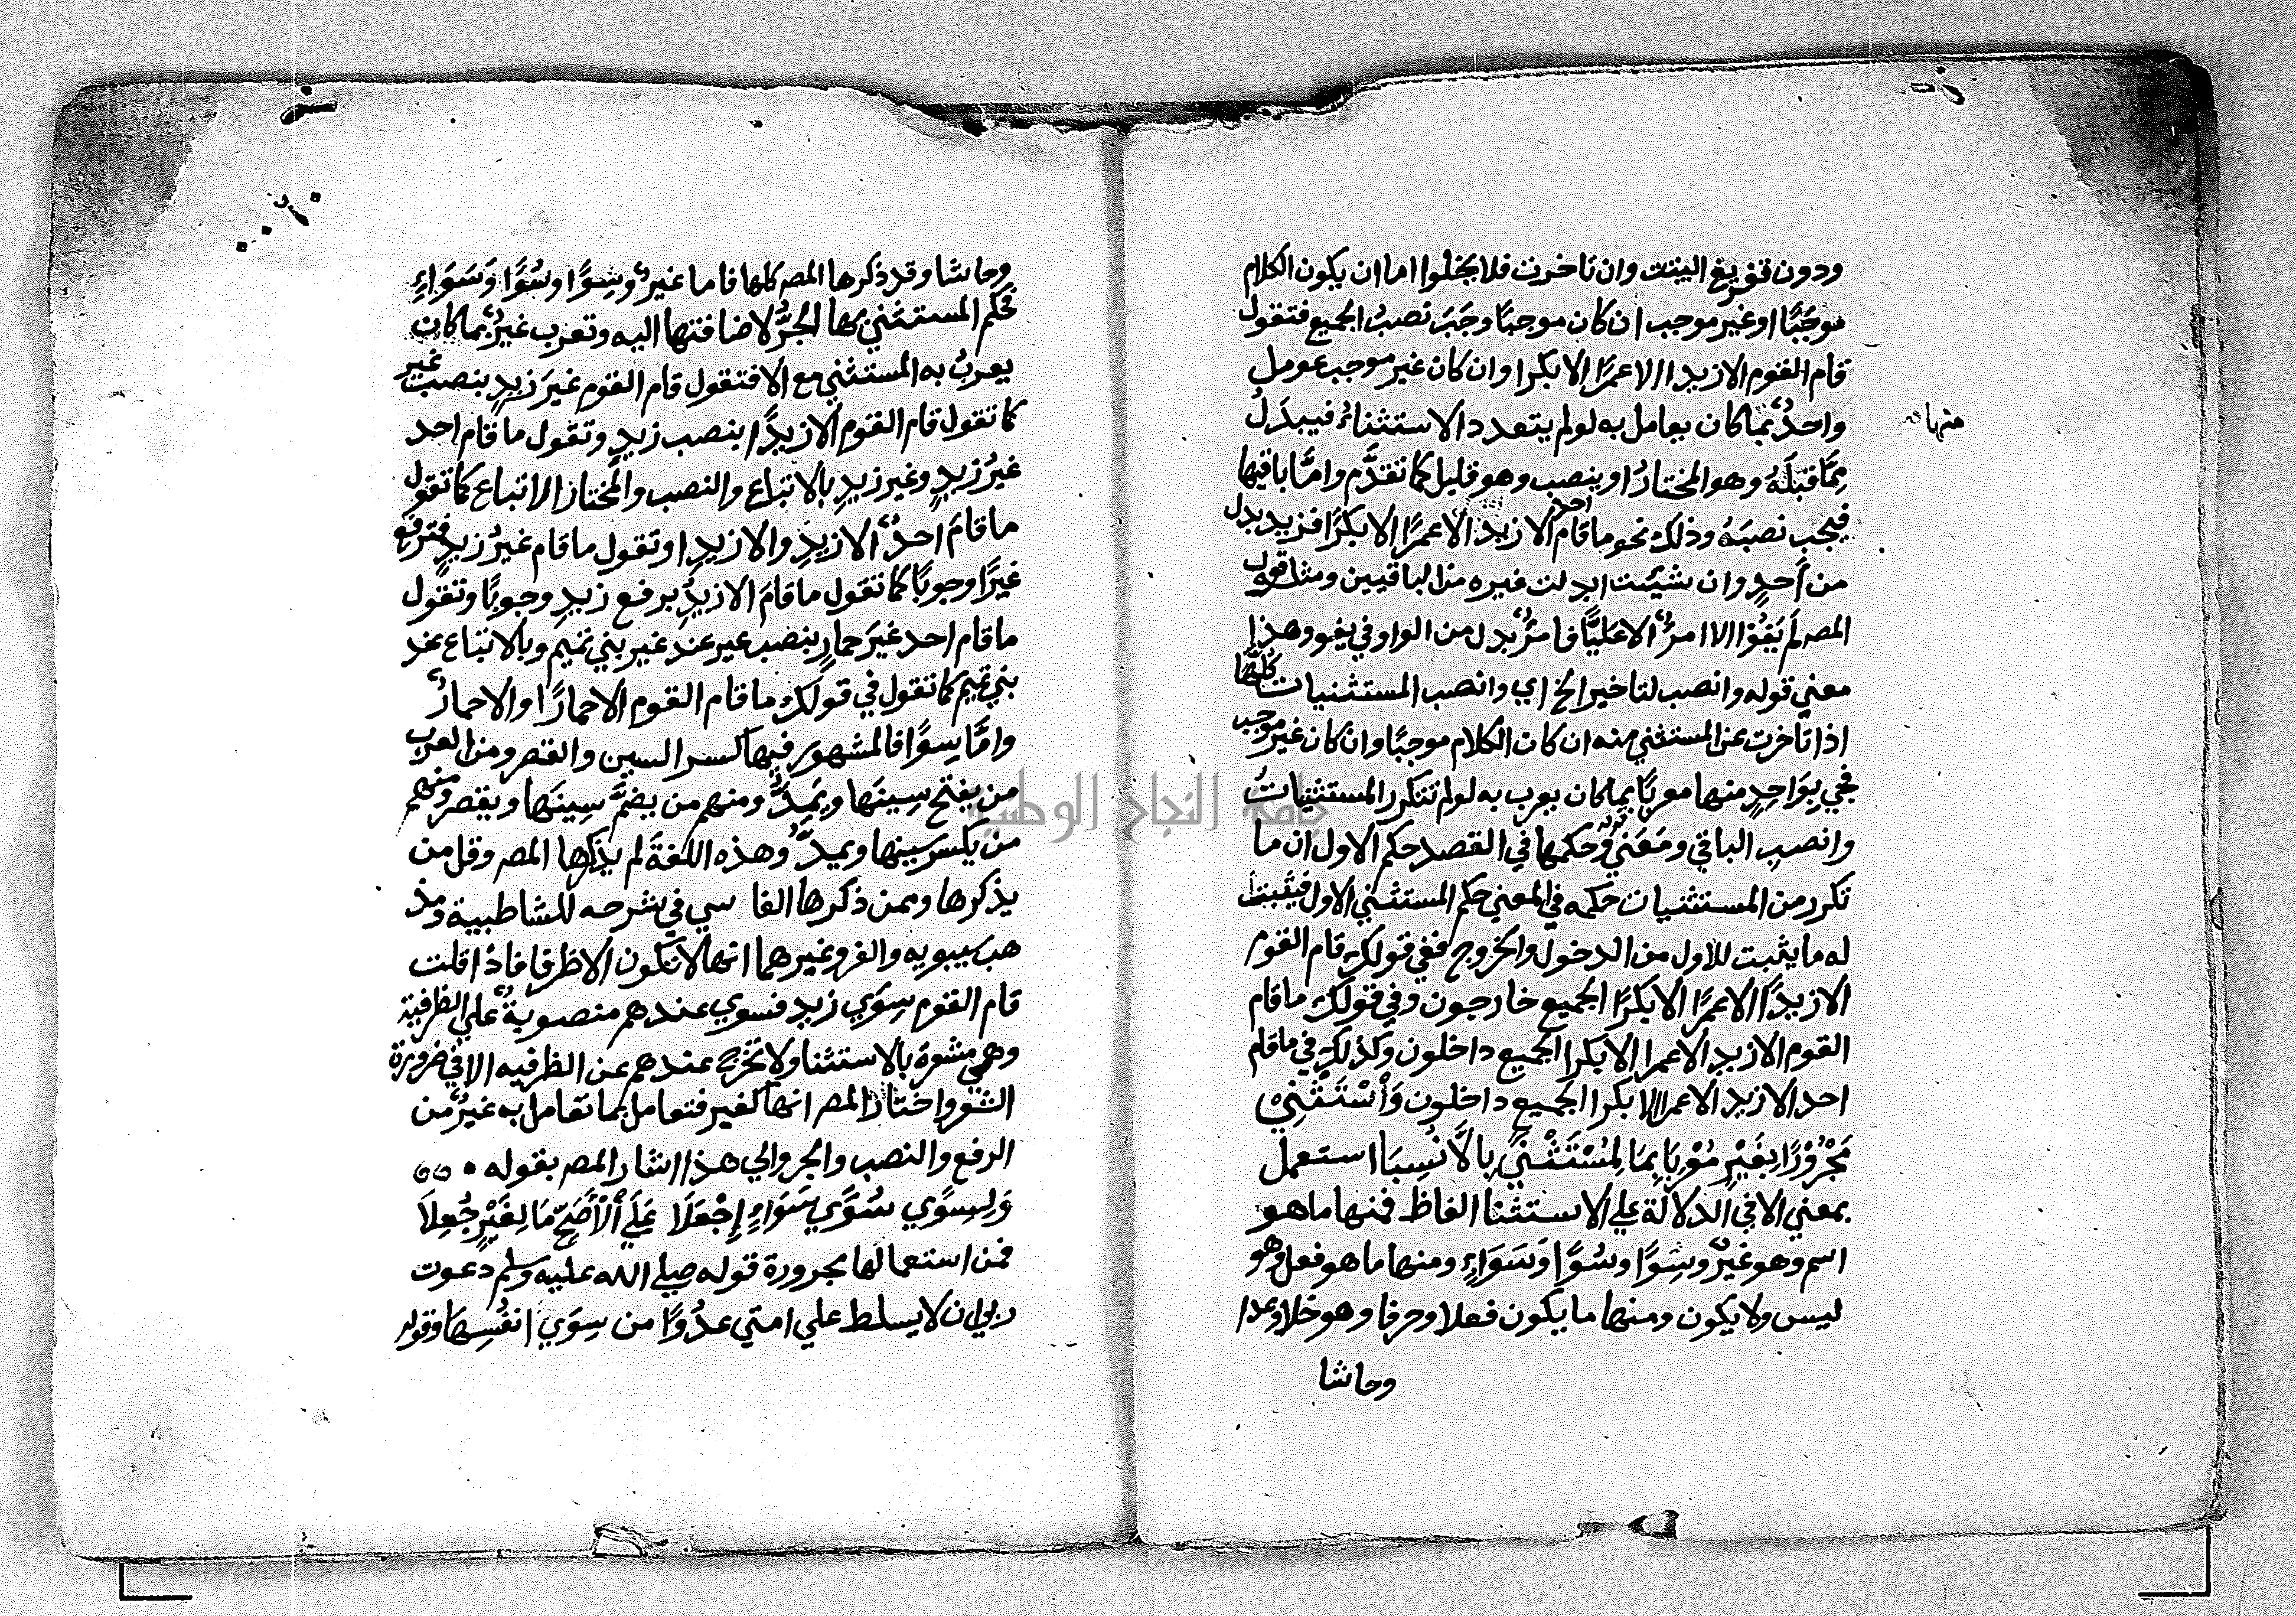 ودون تفريغ البيت وان تاخرت فلا يخلوا اما ان يكون الكلام
موجَبًا او غير موجب ان كان موجبًا وجَبَ نصبُ الجميع فتقول
قام القوم الا زيدا الا عمرًا الا بكرا وان كان غير موجب عومل
واحدٌ بما كان يعامل به لو لم يتعدد الاستثناءُ فيبدَلُ
منها
مِمَّا قبْلَهُ وهو المختارُ او ينصب وهو قليل كما تقدَّم وامَّا باقيها
فيجب نصبَهُ وذلك نحو ما قام احد الا زيدٌ الا عمرًا الا بكرًا فزيد بدل
من أحدٍ وان شيئت ابدلت غيره من الباقيين ومثله قول
المصـ لَم يَفُوْا الا امرٌءُ الا عليًّا فامرٌ بدل من الواو في يفو وهذا
معني قوله وانصب لتاخير الخ اي وانصب المستثنيات كلَّها
اذا تاخرت عن المستثني منه ان كان الكلام موجبًا وان كان غير موجب
فجي بِوَاحِدٍ منها معربًا بما كان يعرب به لو لم تتكرر المستثنياتُ
وانصب الباقي ومَعَني قوله وحكمها في القصد حكم الاول ان ما
تكرر من المستثنيات حكمه في المعني حكم المستثني الاول فيثبت
له ما يثبت للاول من الدخول والخروج ففي قولك قام القوم
الا زيدًا الا عمرًا الا بكرًا الجميع خارجون وفي قولك ما قام
القوم الا زيد الا عمرا الا بكرا الجميع داخلون وكذلك في ما قام
احد الا زيد الا عمرا الا بكرا الجميع داخلون وَاْسْتَثْنِيْ
مَجْرُوْرًا بِغَيْرٍ مُعْرَبًا بِمَا لِمُسْتَثْنًي بِالَّا نُسِبَا استعمل
بمعني الا في الدلالة علي الاستثنا الفاظ فمنها ما هو
اسم وهو غَيْرٌ وسِوًا وسُوًا وَسَوَاءٍ ومنها ما هو فعل وهو
ليس ولا يكون ومنها ما يكون فعلا وحرفا وهو خلا وعدا
وحاشا
وحاشا وقد ذكرها المصـ كلها فاما غيرٌ وسِوًا وسُوًا وَسَوَاءٍ
فحكم المستثني بها الجرُّ لاضافتها اليه وتعرب غيرُ بما كان
يعربُ به المستثني مع الا فتقول قام القوم غيرَ زيدٍ بنصب غير
كما تقول قام القوم الا زيدًا بنصب زيدٍ وتقول ما قام احد
غيرُ زيدٍ وغير زيدٍ بالاتباع والنصب والمختار الاتباع كما تقول
ما قامَ احدٌ الا زيدٌ والا زيدا وتقول ما قام غيرُ زيدٍ فترفع
غيرًا وجوبًا كما تقول ما قامَ الا زيدٌ برفع زيدٍ وجوبًا وتقول
ما قام احد غيرَ حمارٍ بنصب غير عند غير بني تميم وبالاتباع عند
بني تميم كما تقول في قولك ما قام القوم الا حمارًا والا حمارٌ
وامَّا سِوًا فالمشهور فيها كسر السين والقصر ومن العرب
من يفتح سِينَها ويَمدُّ ومنهم من يضمُّ سِينَها ويقصر ومنهم
من يكسر سينها ويمدُّ وهذه اللغةَ لم يذكرها المصـ وقل من
يذكرها وممن ذكرها الفاسي في شرحه للشاطبية ومذ
هب سيبويه والفر وغيرهما انها لا تكون الا ظرفا فاذا قلت
قام القوم سِوَي زيدٍ فسوي عندهم منصوبةٌ علي الظرفية
وهي مشعرة بالاستثنا ولا تخرج عندهم عن الظرفيه الا في ضرورة
الشعر واختار المصـ انها كغير فتعامل بما تعامل به غيرُ من
الرفع والنصب والجر والي هذا اشار المصـ بقوله
وَلِسِوًي سُوًي سَوَاءٍ إِجْعَلَا عَلَي اْلْأَصَحِّ مَا لِغَيْرٍ جُعِلَا
فمن استعمالها مجرورة قوله صلي الله عليه وسلم دعوت
ربي ان لا يسلط علي امتي عدُوًا من سِوَي انفُسِها وقوله
جامعة النجاح الوطنية